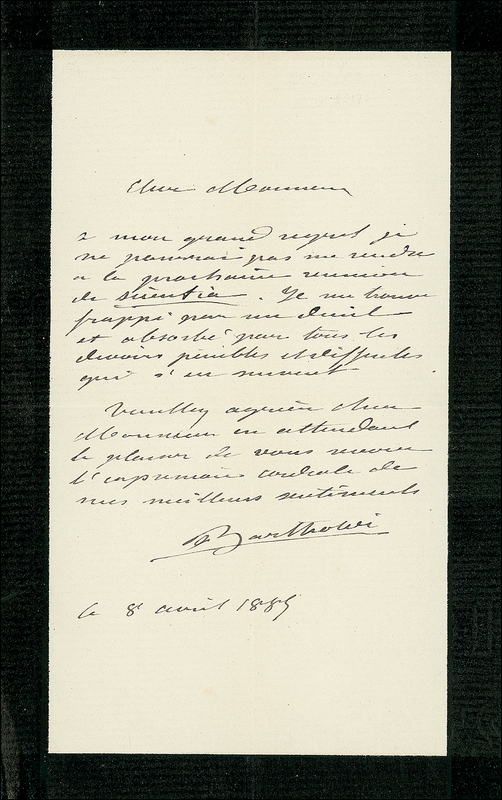 Cher Monsieur
à mon grand regret je
ne pourrai pas me rendre
à la prochaine reunion
de Scientia. Je me trouve
frappé par un deuil
et absorbé par tous les
devoirs penibles et difficiles
qui s'en suivent
Veuillez agréer cher
Monsieur en attendant
le plaisir de vous revoir
l'expression cordiale de
mes meilleurs sentiments
Bartholdi
le 8 avril 1889